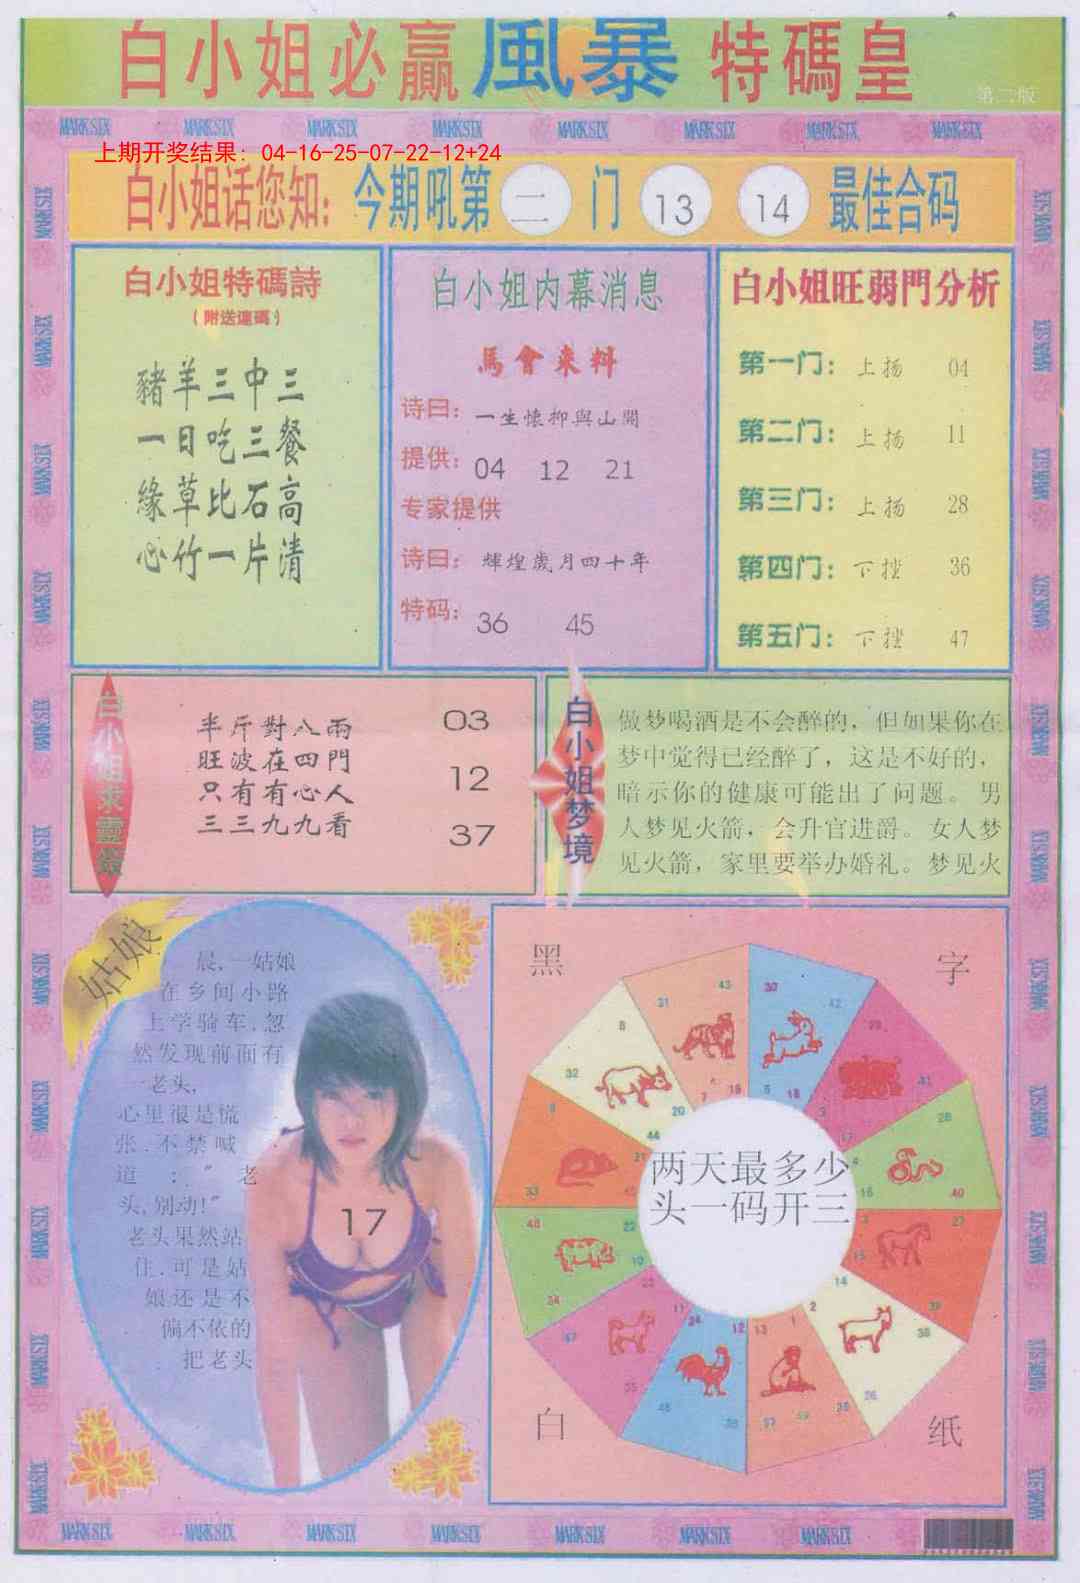 白小姐必贏風暴特碼皇
第二版
MARK SIX MARK SIX MARK SIX MARK SIX MARK SIX MARK SIX MARK SIX MARK SIX
上期开奖结果：04-16-25-07-22-12+24
白小姐话您知：今期吼第二门 13 14 最佳合码
白小姐特碼詩
（附送連碼）
豬羊三中三
一日吃三餐
緣草比石高
心竹一片清
白小姐内幕消息
馬會来料
诗曰：一生懷抑與山開
提供：04 12 21
专家提供
诗曰：輝煌歲月四十年
特码：36 45
白小姐旺弱門分析
第一门：上扬 04
第二门：上扬 11
第三门：上扬 28
第四门：下挫 36
第五门：下挫 47
半斤對八兩 03
旺波在四門
只有有心人 12
三三九九看 37
白小姐梦境
做梦喝酒是不会醉的，但如果你在
梦中觉得已经醉了，这是不好的，
暗示你的健康可能出了问题。男
人梦见火箭，会升官进爵。女人梦
见火箭，家里要举办婚礼。梦见火
姑娘
晨,一姑娘
在乡间小路
上学骑车,忽
然发现前面有
一老头,
心里很是慌
张.不禁喊
道："老
头,别动!"
老头果然站
住.可是姑
娘还是不
偏不依的
把老头
17
黑 字
两天最多少
头一码开三
白 纸
MARK SIX MARK SIX MARK SIX MARK SIX MARK SIX MARK SIX MARK SIX